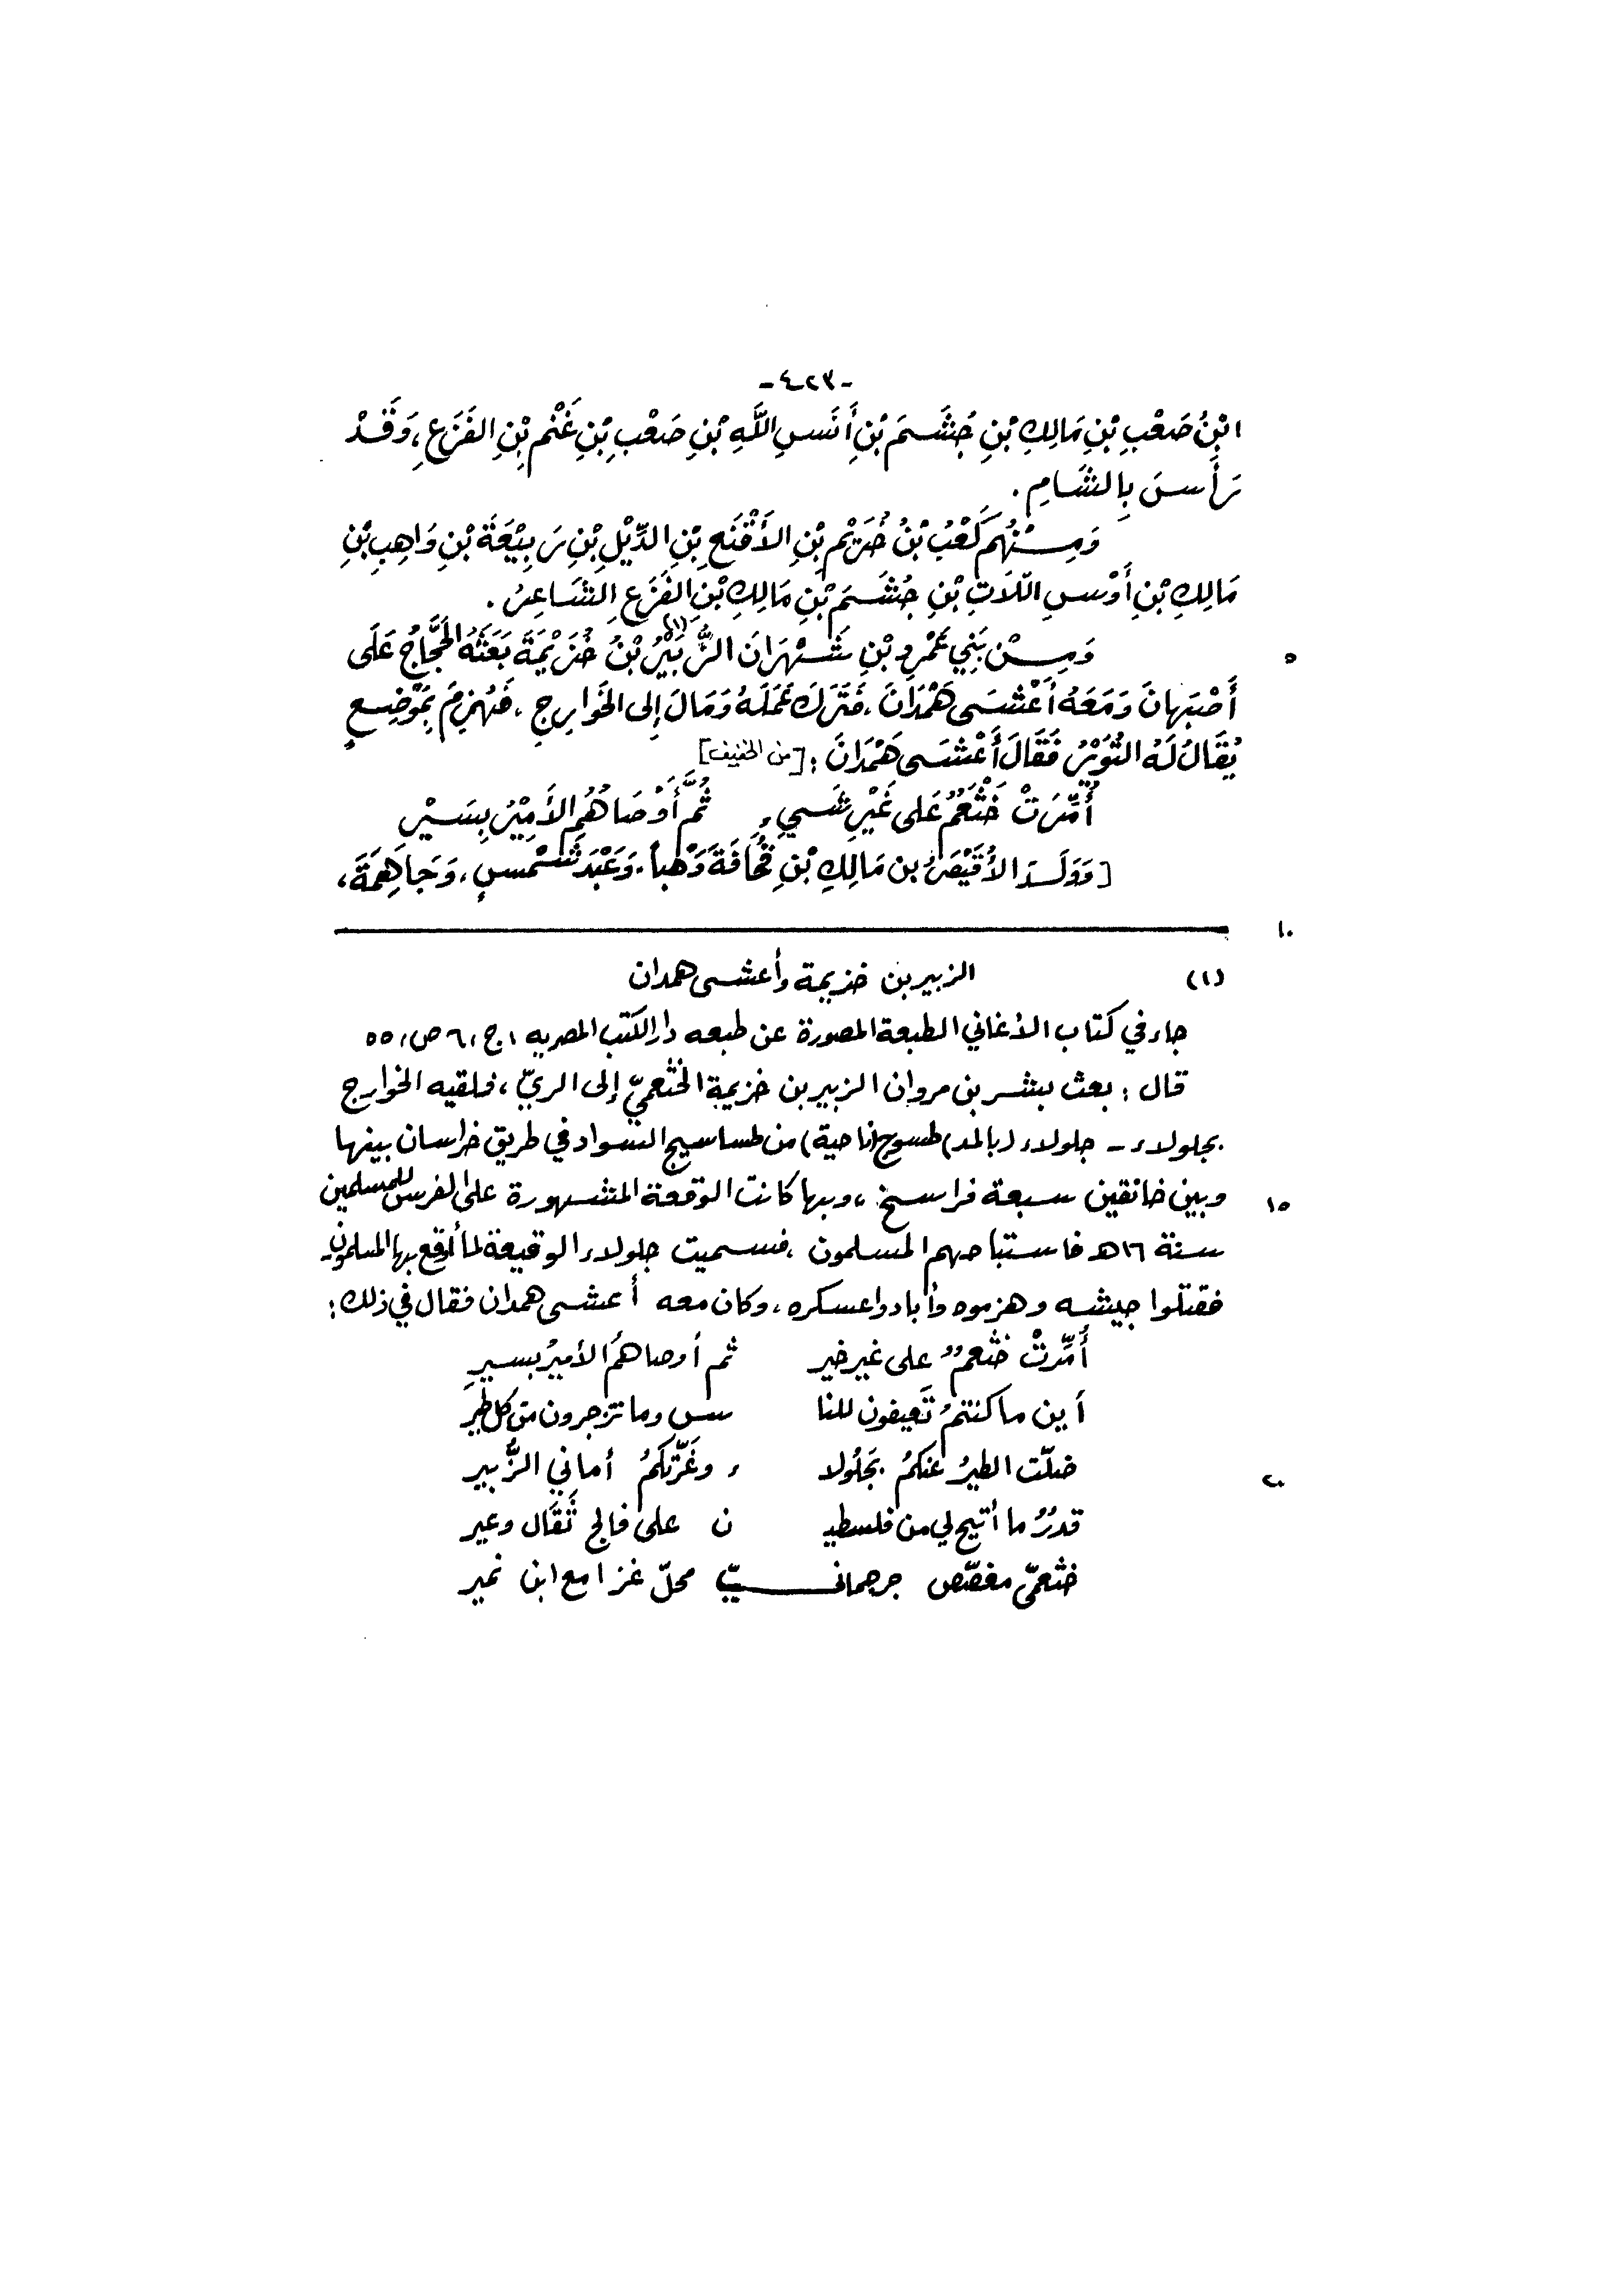 -٤٢٣-
ابْنُ صَعْبِ بْنِ مَالِكِ بْنِ جُشَمَ بْنِ أَنَسِ اللَّهِ بْنِ صَعْبِ بْنِ غَنْمِ بْنِ الفَزَعِ، وَقَدْ
رَأَسَ بِالشَامِ.
وَمِنْهُم كَعْبُ بْنُ خُزَيْمِ بْنِ الأَقْنَعِ بْنِ الدِّيْلِ بْنِ رَبِيْعَةَ بْنِ وَاهِبِ بْنِ
مَالِكِ بْنِ أَوْسِ اللّاَتِ بْنِ جُشَمَ بْنِ مَالِكِ بْنِ الفَزَعِ الشَاعِرُ.
وَمِنْ بَنِي عَمْرِو بْنِ شَهْرَانَ الزُّبَيْرُ(١) بْنُ خُزَيْمَةَ بَعَثَهُ الحَجَّاجُ عَلَى
٥
أَصْبَهانَ وَمَعَهُ أَعْشَى هَمْدَانَ، فَتَرَكَ عَمَلَهُ وَمَالَ إِلى الخَوارِجِ، فَهُزِمَ بِمَوْضِعٍ
يُقَالُ لَهُ التُوَيْرُ فَقَالَ أَعْشَى هَمْدَانَ: [من الخفيف]
أُمِّرَتْ خَثْعَمٌ عَلى غَيْرِ شَيءٍ ثُمَّ أَوْصَاهُمُ الأَمِيْرُ بِسَيْرِ
[وَوَلَدَ الأُقَيْصِرُ بن مَالِكِ بْنِ قُحَافَةَ وَهْباً، وَعَبْدَ شَمْسٍ، وَجَاهِمَةَ،
١٠
(١) الزبير بن خزيمة وأعشى همدان
جاء في كتاب الأغاني الطبعة المصورة عن طبعه دار الكتب المصريه، ج، ٦ ص، ٥٥
قال: بعث بشر بن مروان الزبير بن خزيمة الخثعميّ إلى الريّ، فلقيه الخوارج
بجلولاء - جلولاء (بالمد) طسوج(ناحية) من طساسيج السواد في طريق خراسان بينها
وبين خانقين سبعة فراسخ، وبها كانت الوقعة المشهورة على الفرس للمسلمين
١٥
سنة ١٦هـ فاستباحهم المسلمون، فسميت جلولاء الوقيعة لما أوقع بها المسلمون -
فقتلوا جيشه وهزموه وأبادوا عسكره، وكان معه أعشى همدان فقال في ذلك:
أُمِّرتْ خثعمٌ على غير خير ثم أوصاهمُ الأميرُ بسيرِ
أين ما كنتمُ تَعيفون للنا س وما تزجرون من كل طير
ضلّت الطيرُ عنكمُ بجَلُولا ء وغَرّتكمُ أماني الزُّبير
٢٠
قدرٌ ما أتيح لي من فلسطيـ ن على فالج ثَقَال وعير
خثعميّ مغصّص جرجمانـ ـيّ محلّ غزا مع ابن نمير